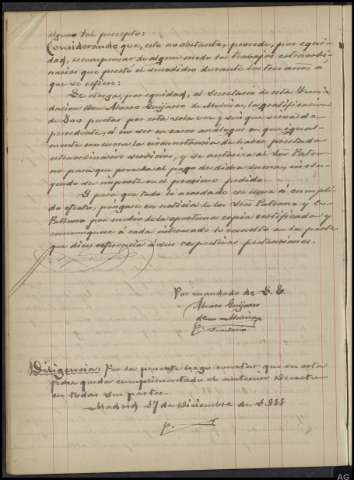 alguno tal precepto:
Considerando que, esto no obstante, procede, por equi-
dad, recompensar de algun modo los trabajos extraordi-
narios que prestó el decidido durante los tres años a
que se refiere:
Se otorga, por equidad, al Secretario de esta Fun-
dacion Don Alvaro Guijarro de Medina, la gratificacion
de Dos pesetas por esta sola vez y sin que sirva de
precedente, á no ser en casos análogos en que igual-
mente concurra la circunstancia de haber prestado
extraordinarios servicios, y se autoriza al Sor Patro-
no para que proceda al pago de dicha suma,
importe en el próximo pedido.
Y para que todo lo acordado se lleve á cumpli-
do efecto, póngase en noticia de los Sres Patrono y
Patrono por medio de la oportuna copia certificada y
comuníquese á cada interesado lo resuelto en la parte
que dice referencia á sus respectivas pretensiones.
Por mandado de S. E.
Alvaro Guijarro
Secretario
Diligencia: Por la presente hago constar que en esta
fecha queda cumplimentado el anterior Decreto
en todas sus partes.
Madrid 17 de Diciembre de